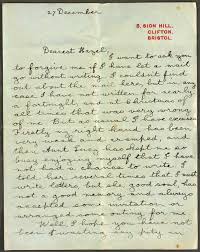 27 December
5, SION HILL,
CLIFTON,
BRISTOL.
Dearest Hazel,
I want to ask you
to forgive me if I have let a mail
go without writing. I couldn't find
out about the mail here, but in any
case I have not written for nearly
a fortnight, and at Christmas of
all times that was very wrong
of me. But as usual I have excuses.
Firstly my right hand has been
very weak and crushed, and
then Aunt has kept me so
busy enjoying myself that I have
not had a chance to write. I
told her several times that I must
write letters, but she, good soul, has
not a good memory and always
accepted some invitation or
arranged some outing for me
Well, I hope you have not
been wasting any pity in